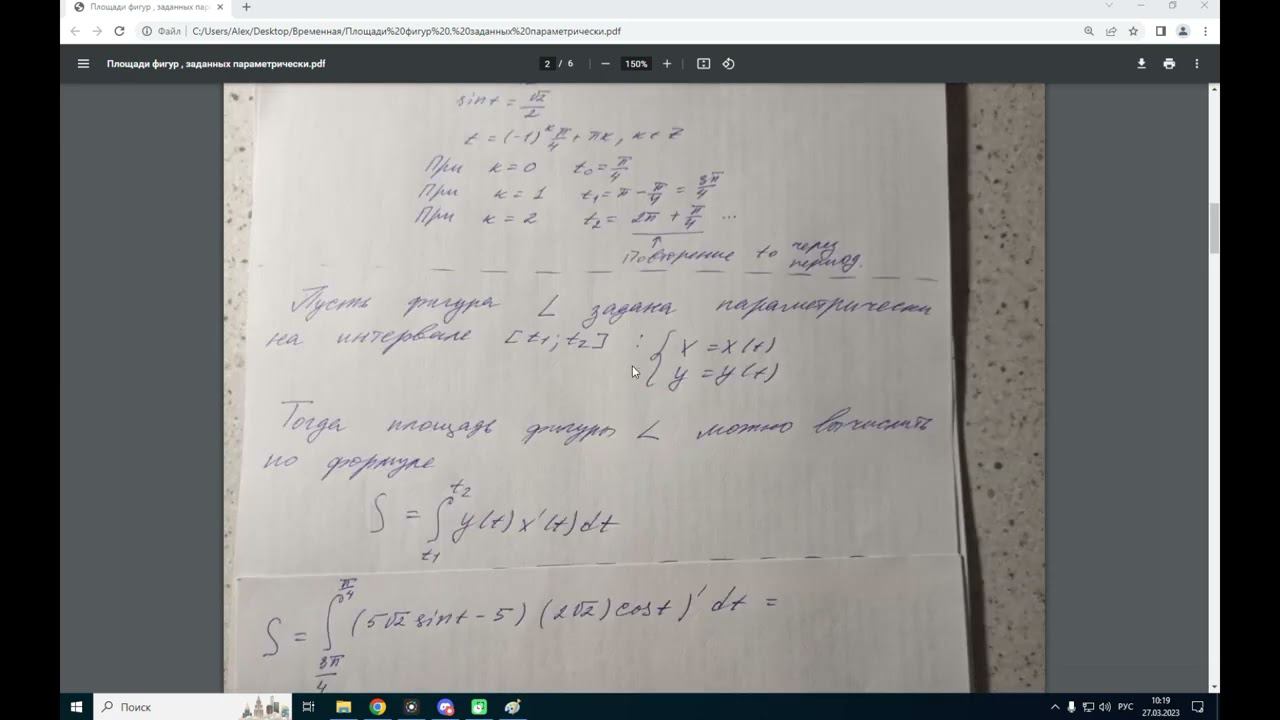 Площади фигур , заданных пар
Файл C:/Users/Alex/Desktop/Временная/Площади%20фигур%20.%20заданных%20параметрически.pdf
Площади фигур , заданных параметрически.pdf 2 / 6 150%
sin t = √2/2
t = (-1)^к π/4 + πк, к ∈ Z
При к = 0 t₀ = π/4
При к = 1 t₁ = π − π/4 = 3π/4
При к = 2 t₂ = 2π + π/4 ...
Повторение t₀ через период.
Пусть фигура L задана параметрически
на интервале [t₁; t₂] : { x = x(t)
y = y(t)
Тогда площадь фигуры L можно вычислить
по формуле
S = ∫_{t₁}^{t₂} y(t) x'(t) dt
S = ∫_{3π/4}^{π/4} (5√2 sin t − 5) (2√2) cos t)' dt =
Поиск
РУС
10:19
27.03.2023